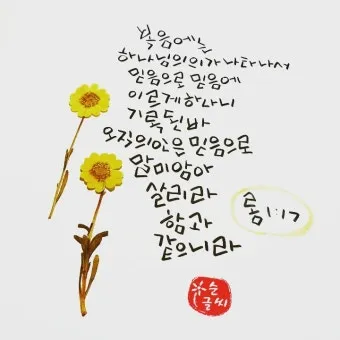 복음에는
하나님의 의가 나타나서
믿음으로 믿음에
이르게 하나니
기록된 바
오직 의인은 믿음으로
말미암아
살리라
함과
같으니라
롬1:17
순
글씨